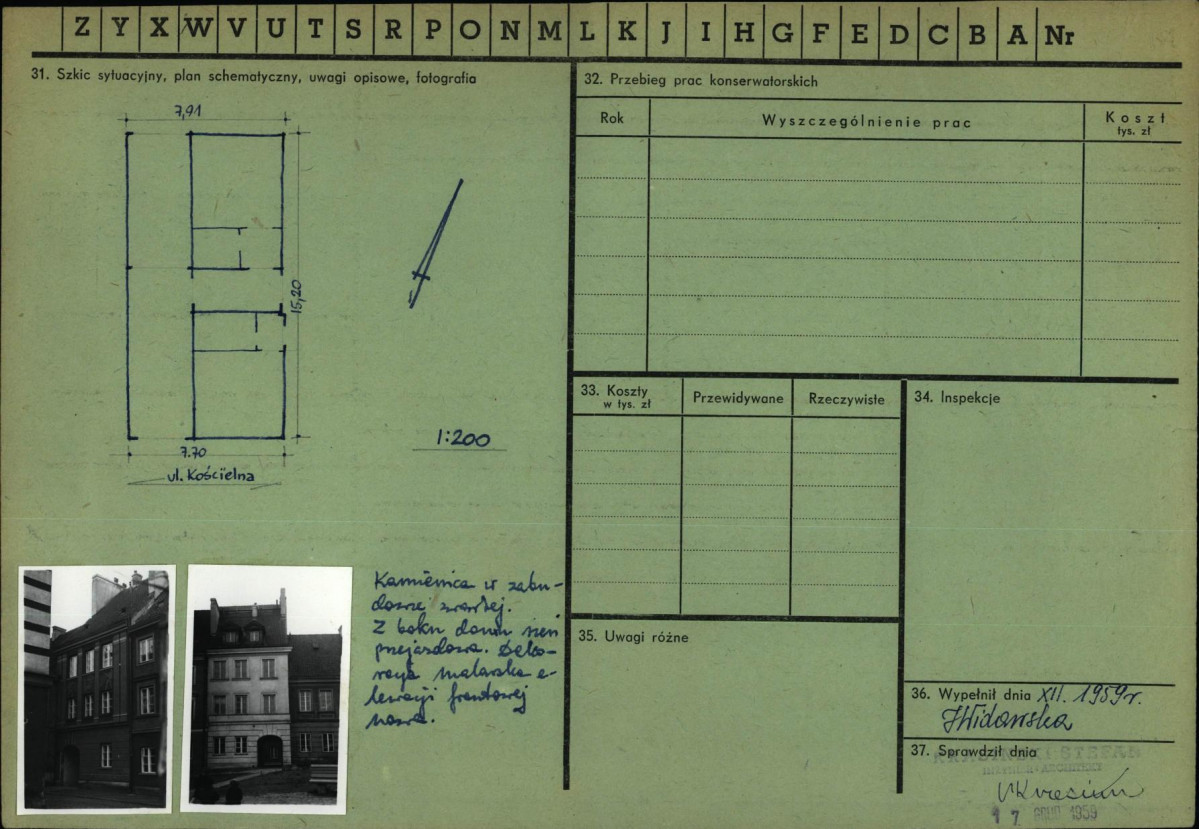 Z Y X W V U T S R P O N M L K J I H G F E D C B A Nr
31. Szkic sytuacyjny, plan schematyczny, uwagi opisowe, fotografia
7,91
15,20
7.70
ul. Kościelna
1:200
Kamienica w zabu-
dowie zwartej.
Z boku domu sień
przejazdowa. Deko-
racja malarska e-
lewacji frontowej
nowa.
32. Przebieg prac konserwatorskich
Rok
Wyszczególnienie prac
Koszt
tys. zł
33. Koszty
w tys. zł
Przewidywane
Rzeczywiste
34. Inspekcje
35. Uwagi różne
36. Wypełnił dnia XII. 1959r.
JWidawska
37. Sprawdził dnia
STEFAN
17 GRUD 1959